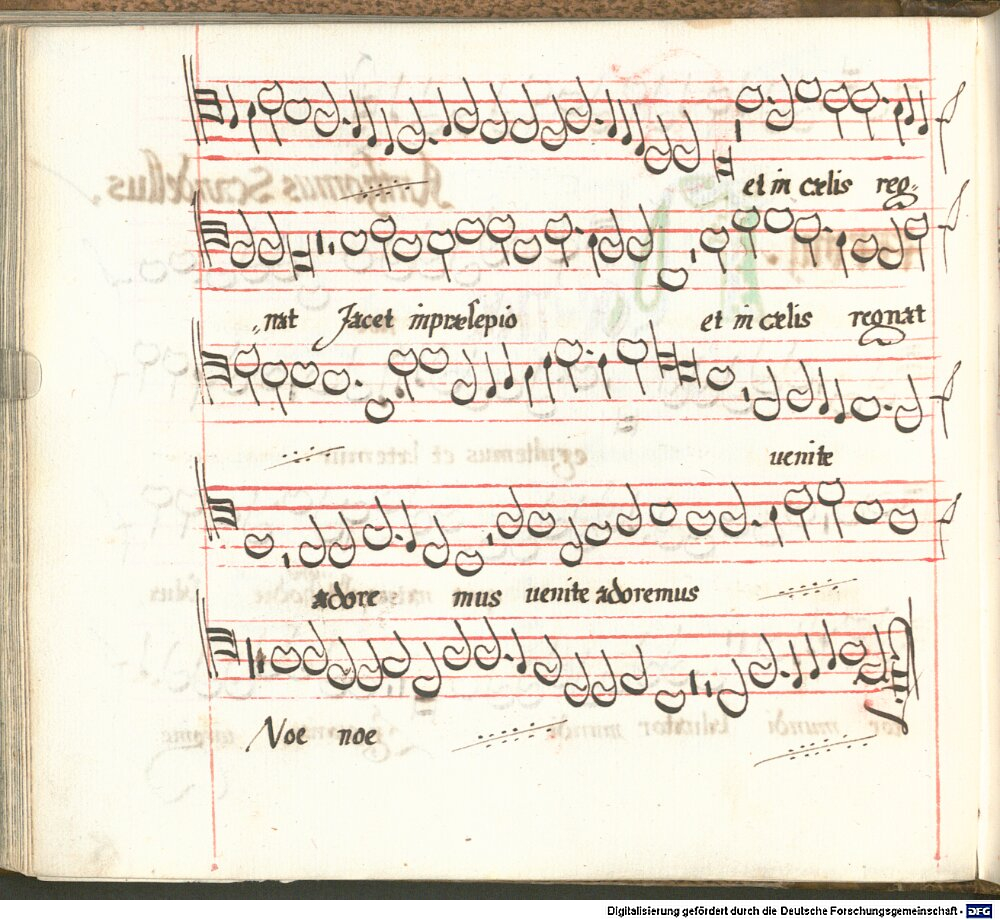 et in cælis reg-
nat Jacet in præsepio et in cælis regnat
uenite
adore mus uenite adoremus
Noe noe
Digitalisierung gefördert durch die Deutsche Forschungsgemeinschaft - DFG